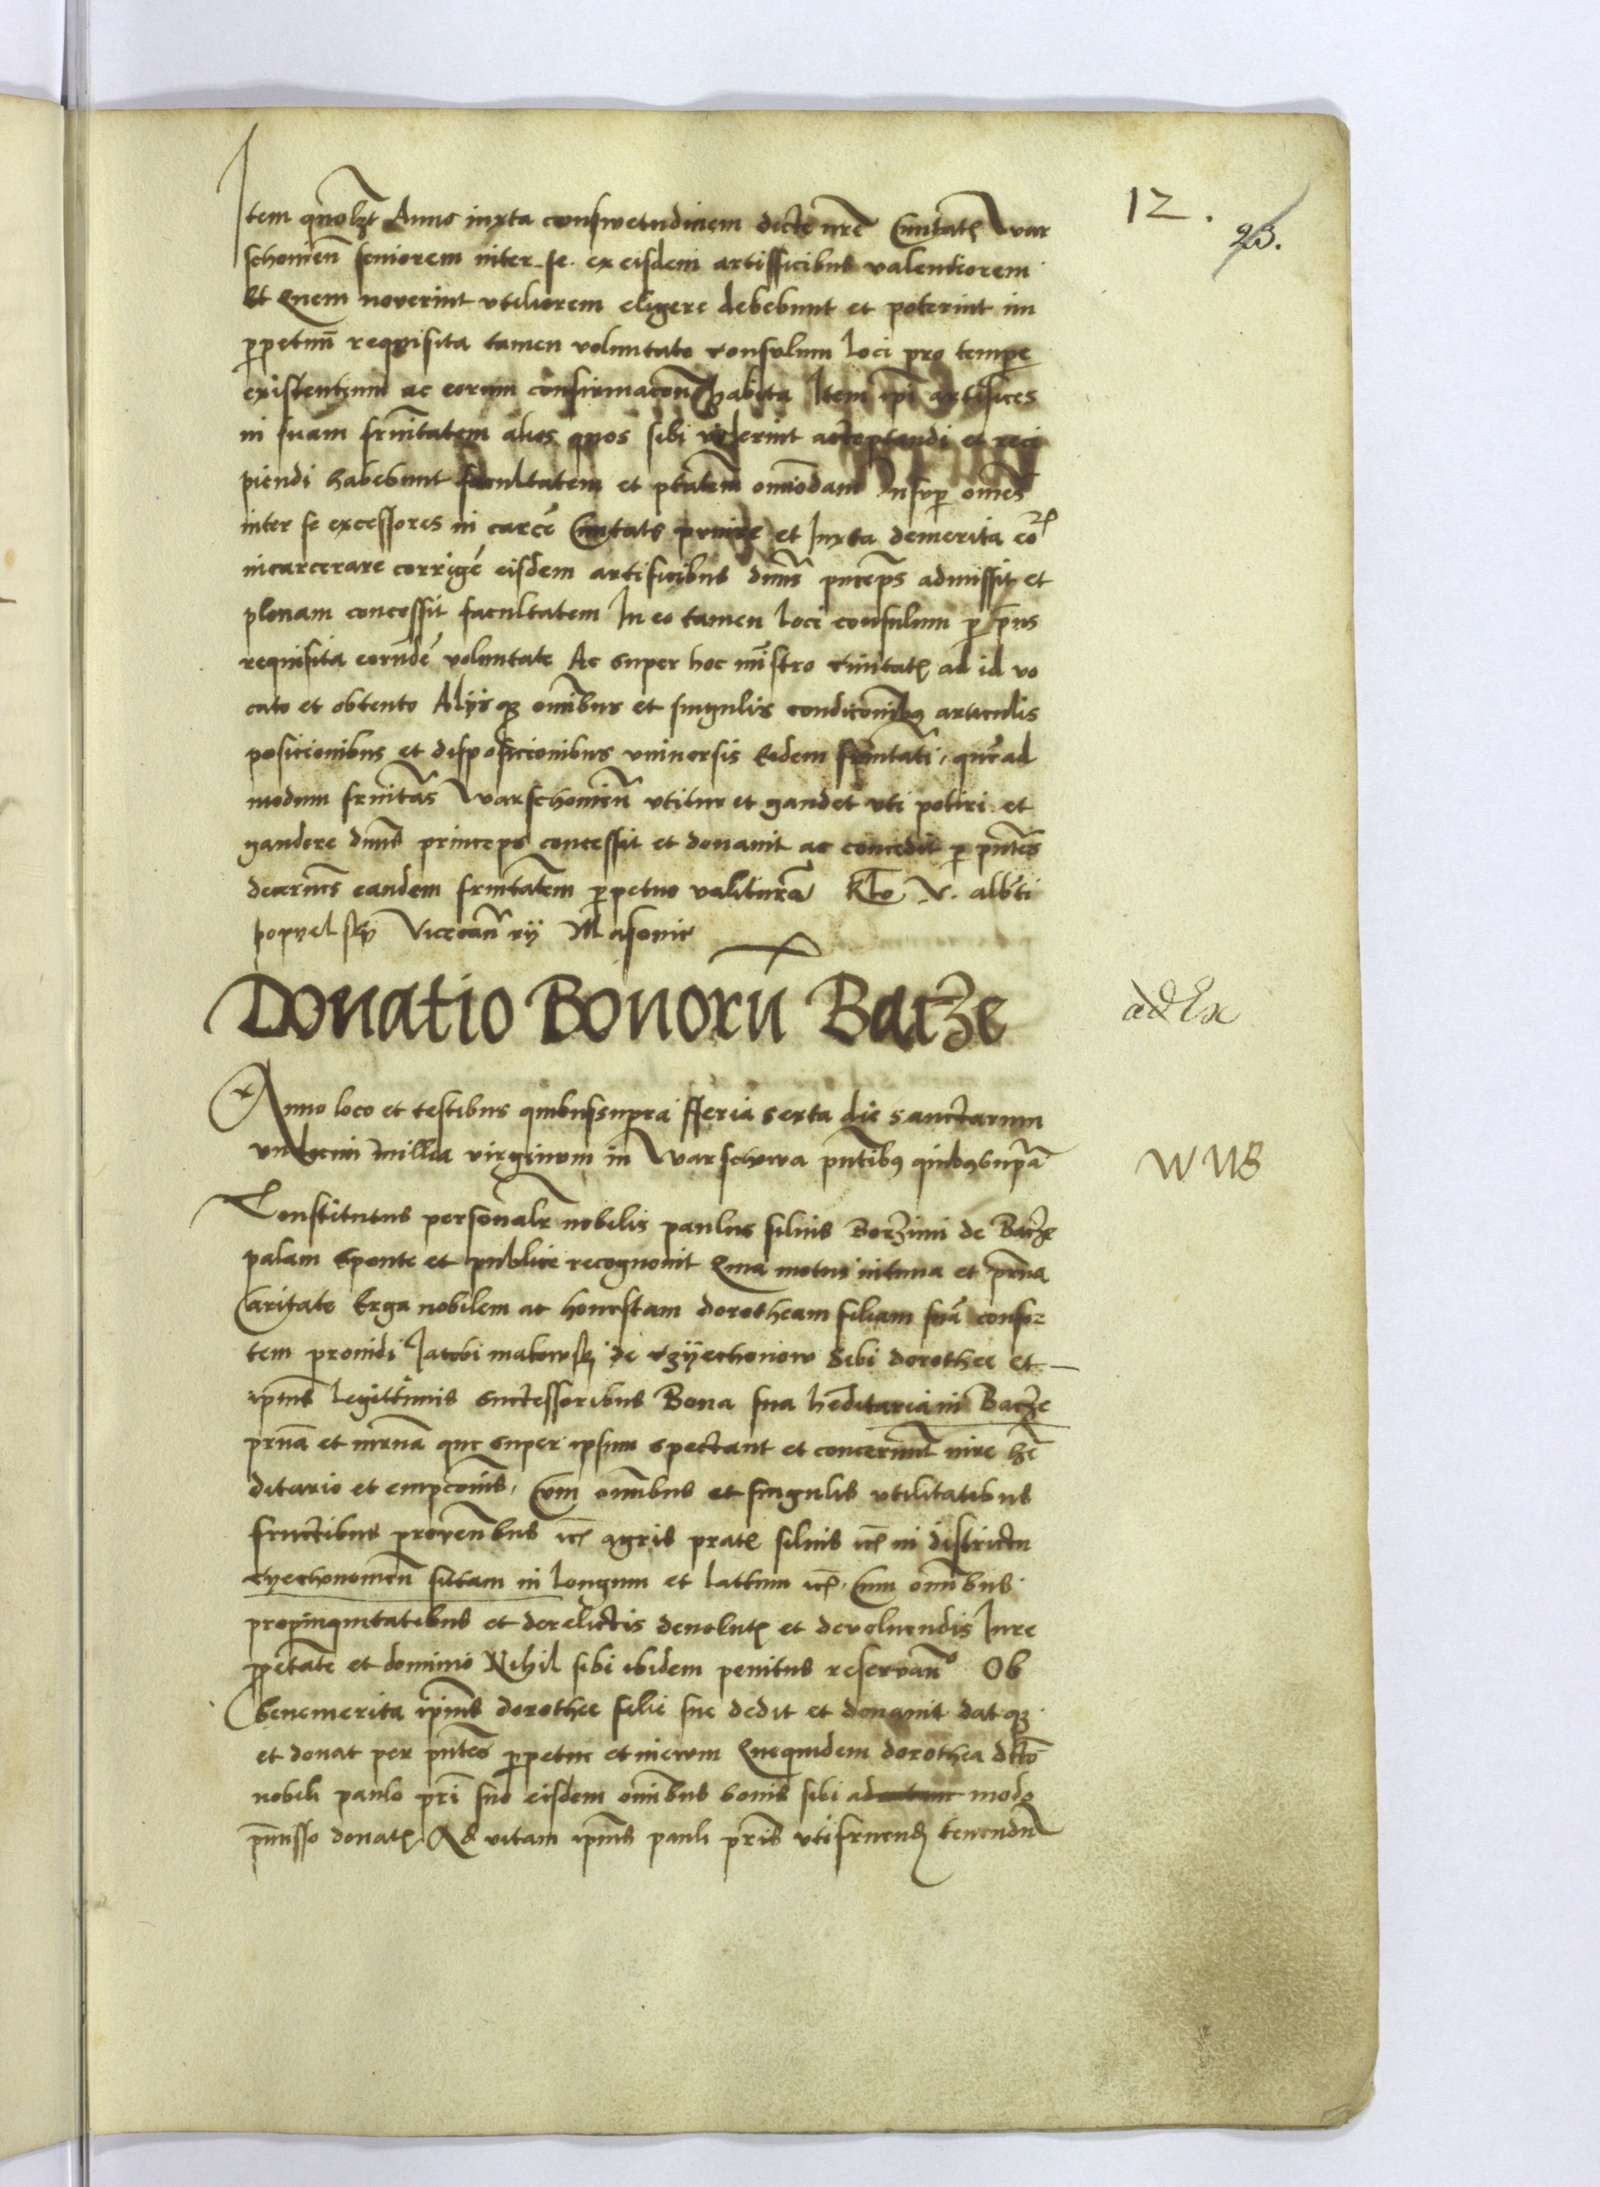 12.
23.
Item qnolzt Anno iuxta conswetudinem dicte nre Ciuitatis War
schouien seniorem inter se ex eisdem artifficibus valentiorem
Et Quem noverint vtiliorem eligere debebunt et poterint im
ppetuu requisita tamen voluntate consulum loci pro tempe
existentium ac eorum confirmacone habita Item ipi artifices
in suam frnitatem alios quos sibi viderint acceptandi et reci
piendi habebunt facultatem et ptatem omiodam Insup omes
inter se excessores in carce Ciuitats punire et Iuxta demerita eor
incarcerare corrige eisdem artificibus dnus pnceps admissit et
plenam concessit facultatem In eo tamen loci consulum p prius
requisita eorude voluntate Ac super hoc mistro ciuitatis ad id vo
cato et obtento Alijsq omibus et singulis condiconibus articulis
posicionibus et disposicionibus vniuersis Eidem frnitati quead
modum frnitas Warschouien vtitur et gaudet vti potiri et
gaudere dnus princeps concessit et donauit ac concedit p pntes
decernes eandem frnitatem ppetuo valitura Rlto V. alberti
popyelsky Vicecan rij Masouie
Donatio Bonoru Bacze
ad Ex
Anno loco et testibus quibussupra fferia sexta die sanctarum
vndecim millia virginum in Warschowa pntibus quibussupra
WUB
Constitutus personalr nobilis paulus filius Borzimi de Bacze
palam sponte et publice recognouit Quia motus intima et prna
Caritate Erga nobilem ac honestam dorotheam filiam sua consor
tem prouidi Jacobi makowsky de Czyechonow sibi dorothee et
ipius legittimis successoribus Bona sua heditaria in Bacze
prna et mrna que super ipsum spectant et concernut iure he
ditario et empconis, Cum omibus et singulis vtilitatibus
fructibus prouentibus etc agris pratis siluis etc in districtu
cyechonomen sittam in longum et lattum etc Cum omibus
propinquitatibus et derelictis deuolutis et devoluendis Iure
ppetate et dominio Nihil sibi ibidem penitus reservano Ob
benemerita ipius dorothee filie sue dedit et donauit datq
et donat per pntes ppetue et in ewm Quequidem dorothea dcto
nobili paulo pri suo eisdem omibus bonis sibi ad modo
pmisso donatis Ad vitam ipius pauli pris vtifruend tenendu